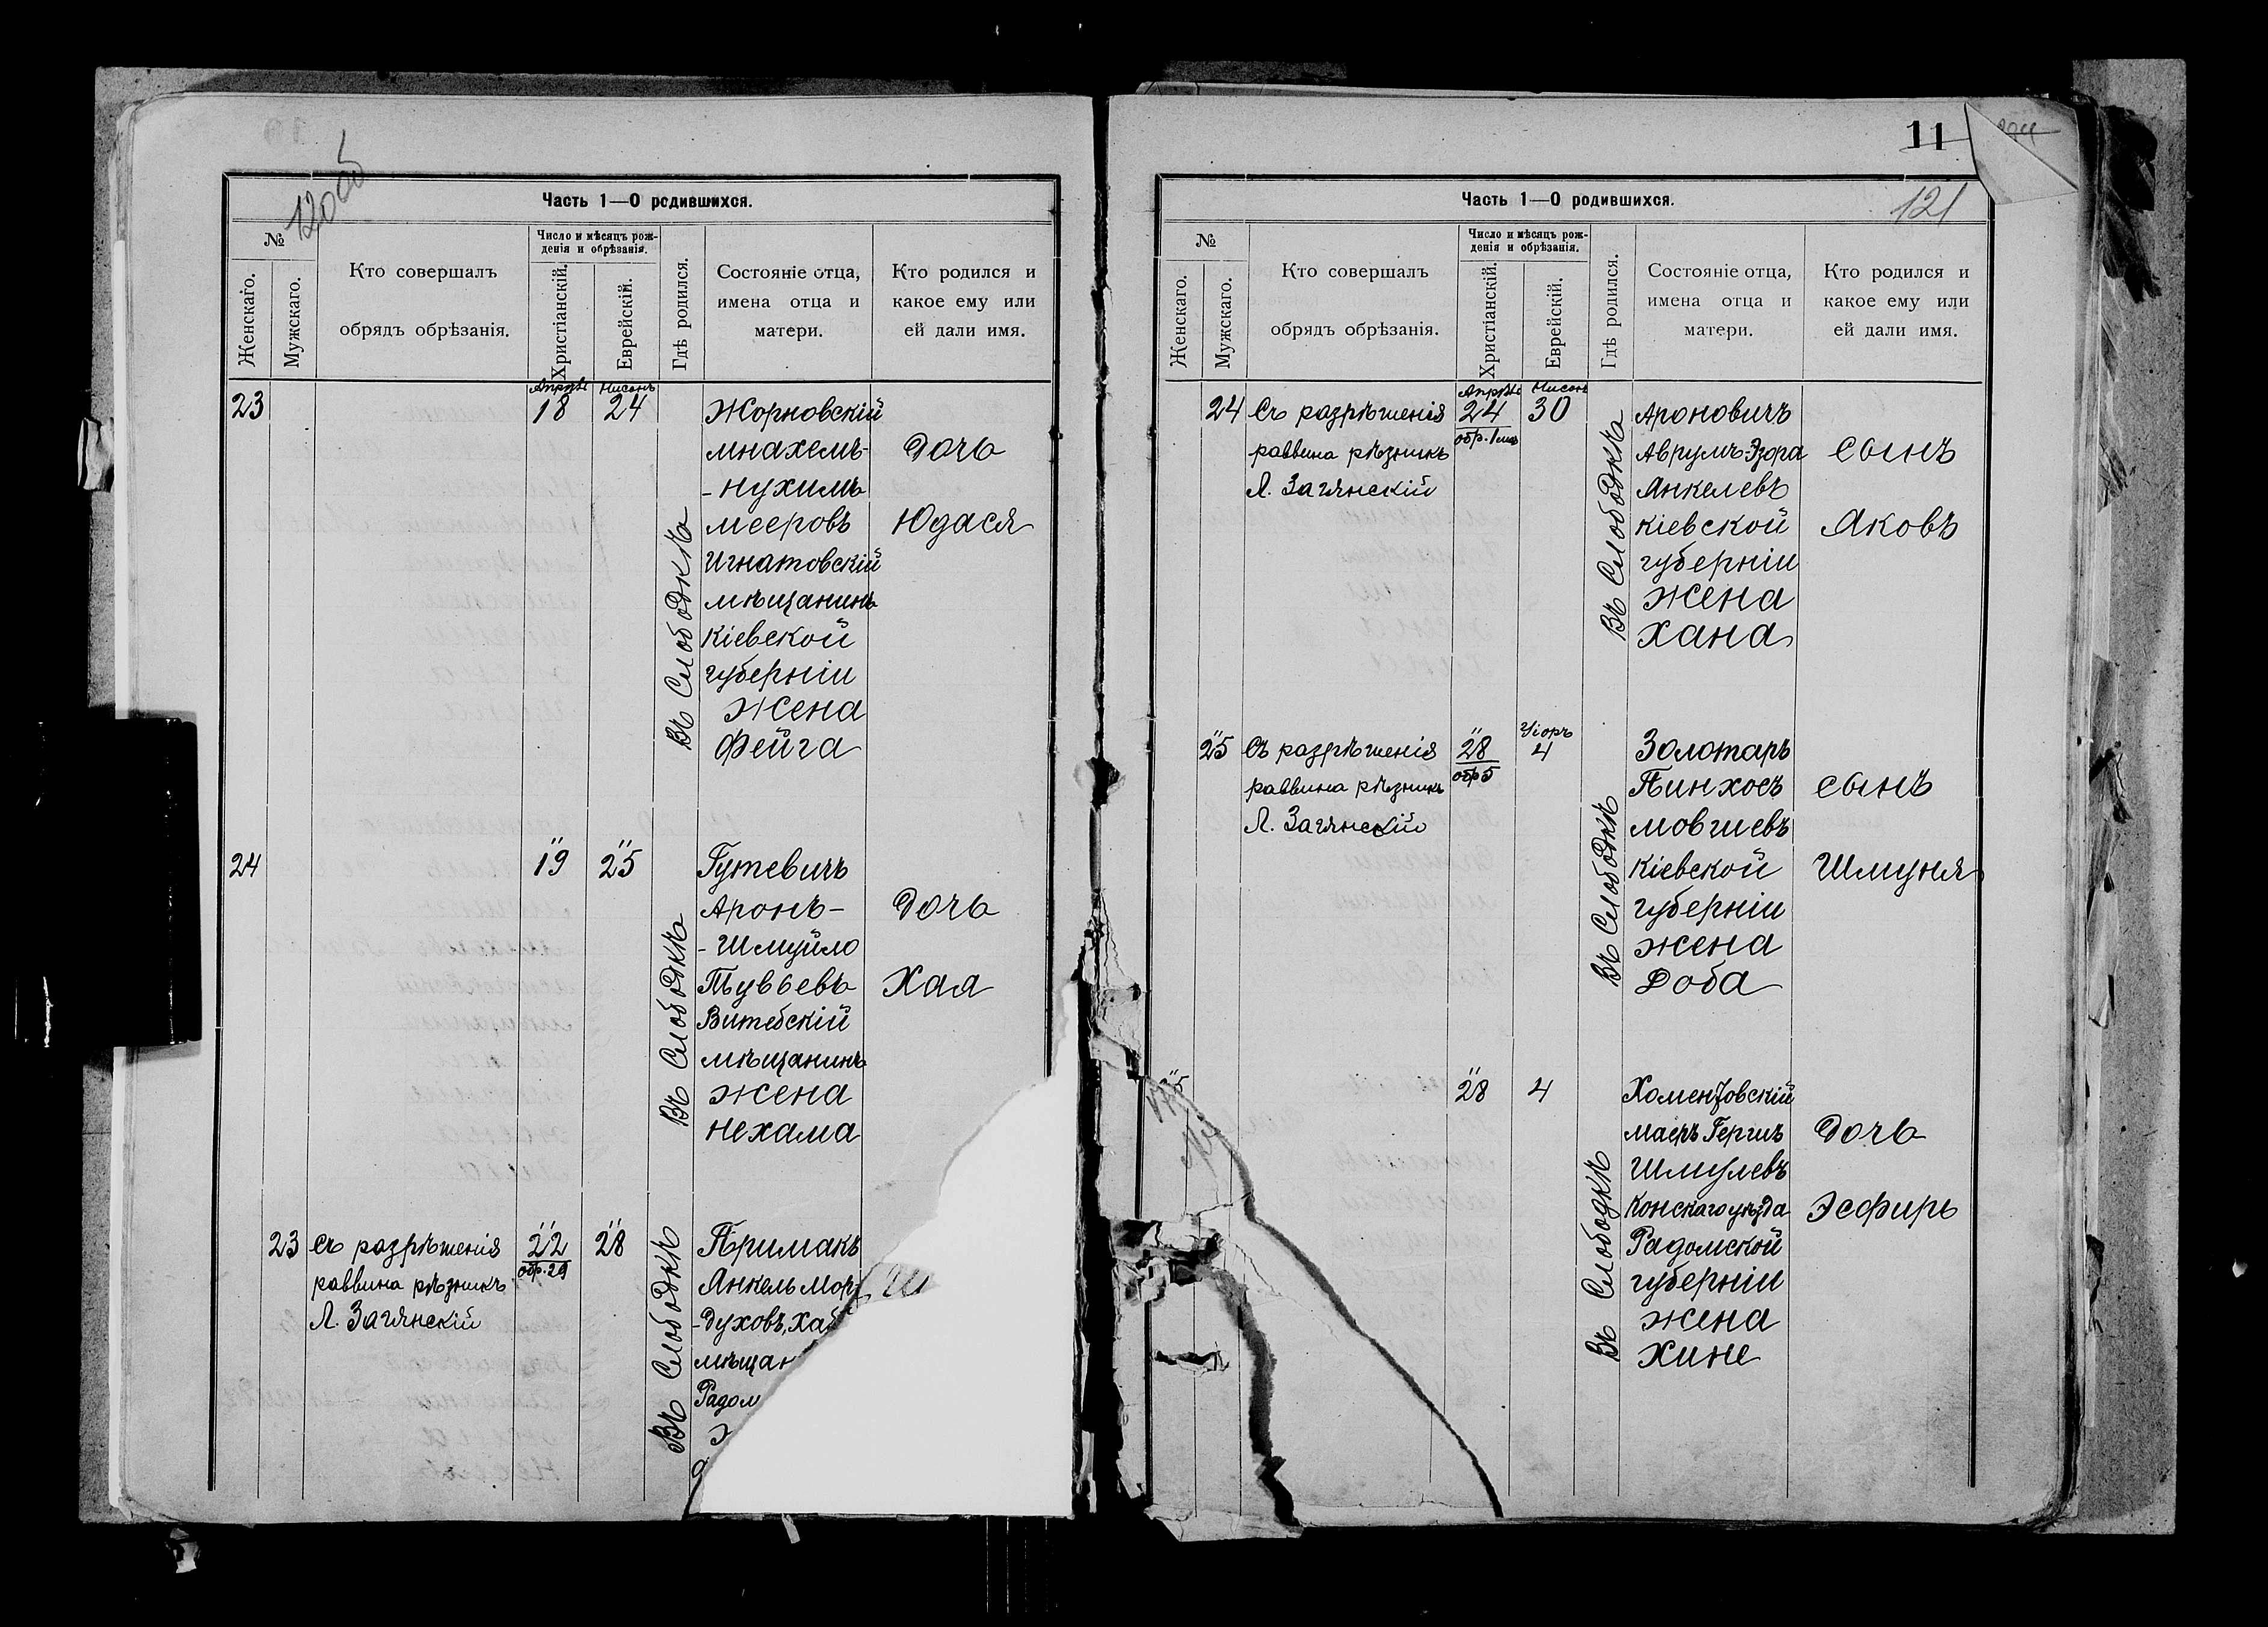 120об
Часть 1—О родившихся.
№
Женскаго.
Мужскаго.
Кто совершалъ
обрядъ обрѣзанія.
Число и мѣсяцъ рож-
денія и обрѣзанія.
Христіанскій.
Еврейскій.
Гдѣ родился.
Состояніе отца,
имена отца и
матери.
Кто родился и
какое ему или
ей дали имя.
Апрѣль Нисонъ
23 18 24 Жорновскій
мнахемъ- Дочь
-нухимъ
мееровъ Юдася
Игнатовскій
мѣщанинъ
Кіевской
губерніи
жена
Фейга
Въ Слободкѣ
24 19 25 Гутевичъ
Аронъ- Дочь
-Шмуйло
Тувьевъ Хая
Витебскій
мѣщанинъ
жена
Нехама
Въ Слободкѣ
23 Съ разрѣшенія 22 28 Примакъ
обр. 29
раввина рѣзникъ Янкель Мор-
Л. Загянскій -духовъ, Хаб
мѣщан
Радом
Въ Слободкѣ
11
121
Часть 1—О родившихся.
№
Женскаго.
Мужскаго.
Кто совершалъ
обрядъ обрѣзанія.
Число и мѣсяцъ рож-
денія и обрѣзанія.
Христіанскій.
Еврейскій.
Гдѣ родился.
Состояніе отца,
имена отца и
матери.
Кто родился и
какое ему или
ей дали имя.
Апрѣль Нисонъ
24 Съ разрѣшенія 24 30 Ароновичъ
раввина рѣзникъ Аврумъ-Эзора сынъ
Л. Загянскій Янкелевъ
Кіевской Яковъ
губерніи
жена
Хана
Въ Слободкѣ
Уіоръ
25 Съ разрѣшенія 28 4 Золотарь
обр 5
раввина рѣзникъ Пинхосъ сынъ
Л. Загянскій мовшевъ
Кіевской Шмуня
губерніи
жена
Доба
Въ Слободкѣ
25 28 4 Хоментовскій
маеръ Гершъ Дочь
Шмулевъ
Конскаго уѣзда Эсфирь
Радомской
губерніи
жена
Хине
Въ Слободкѣ